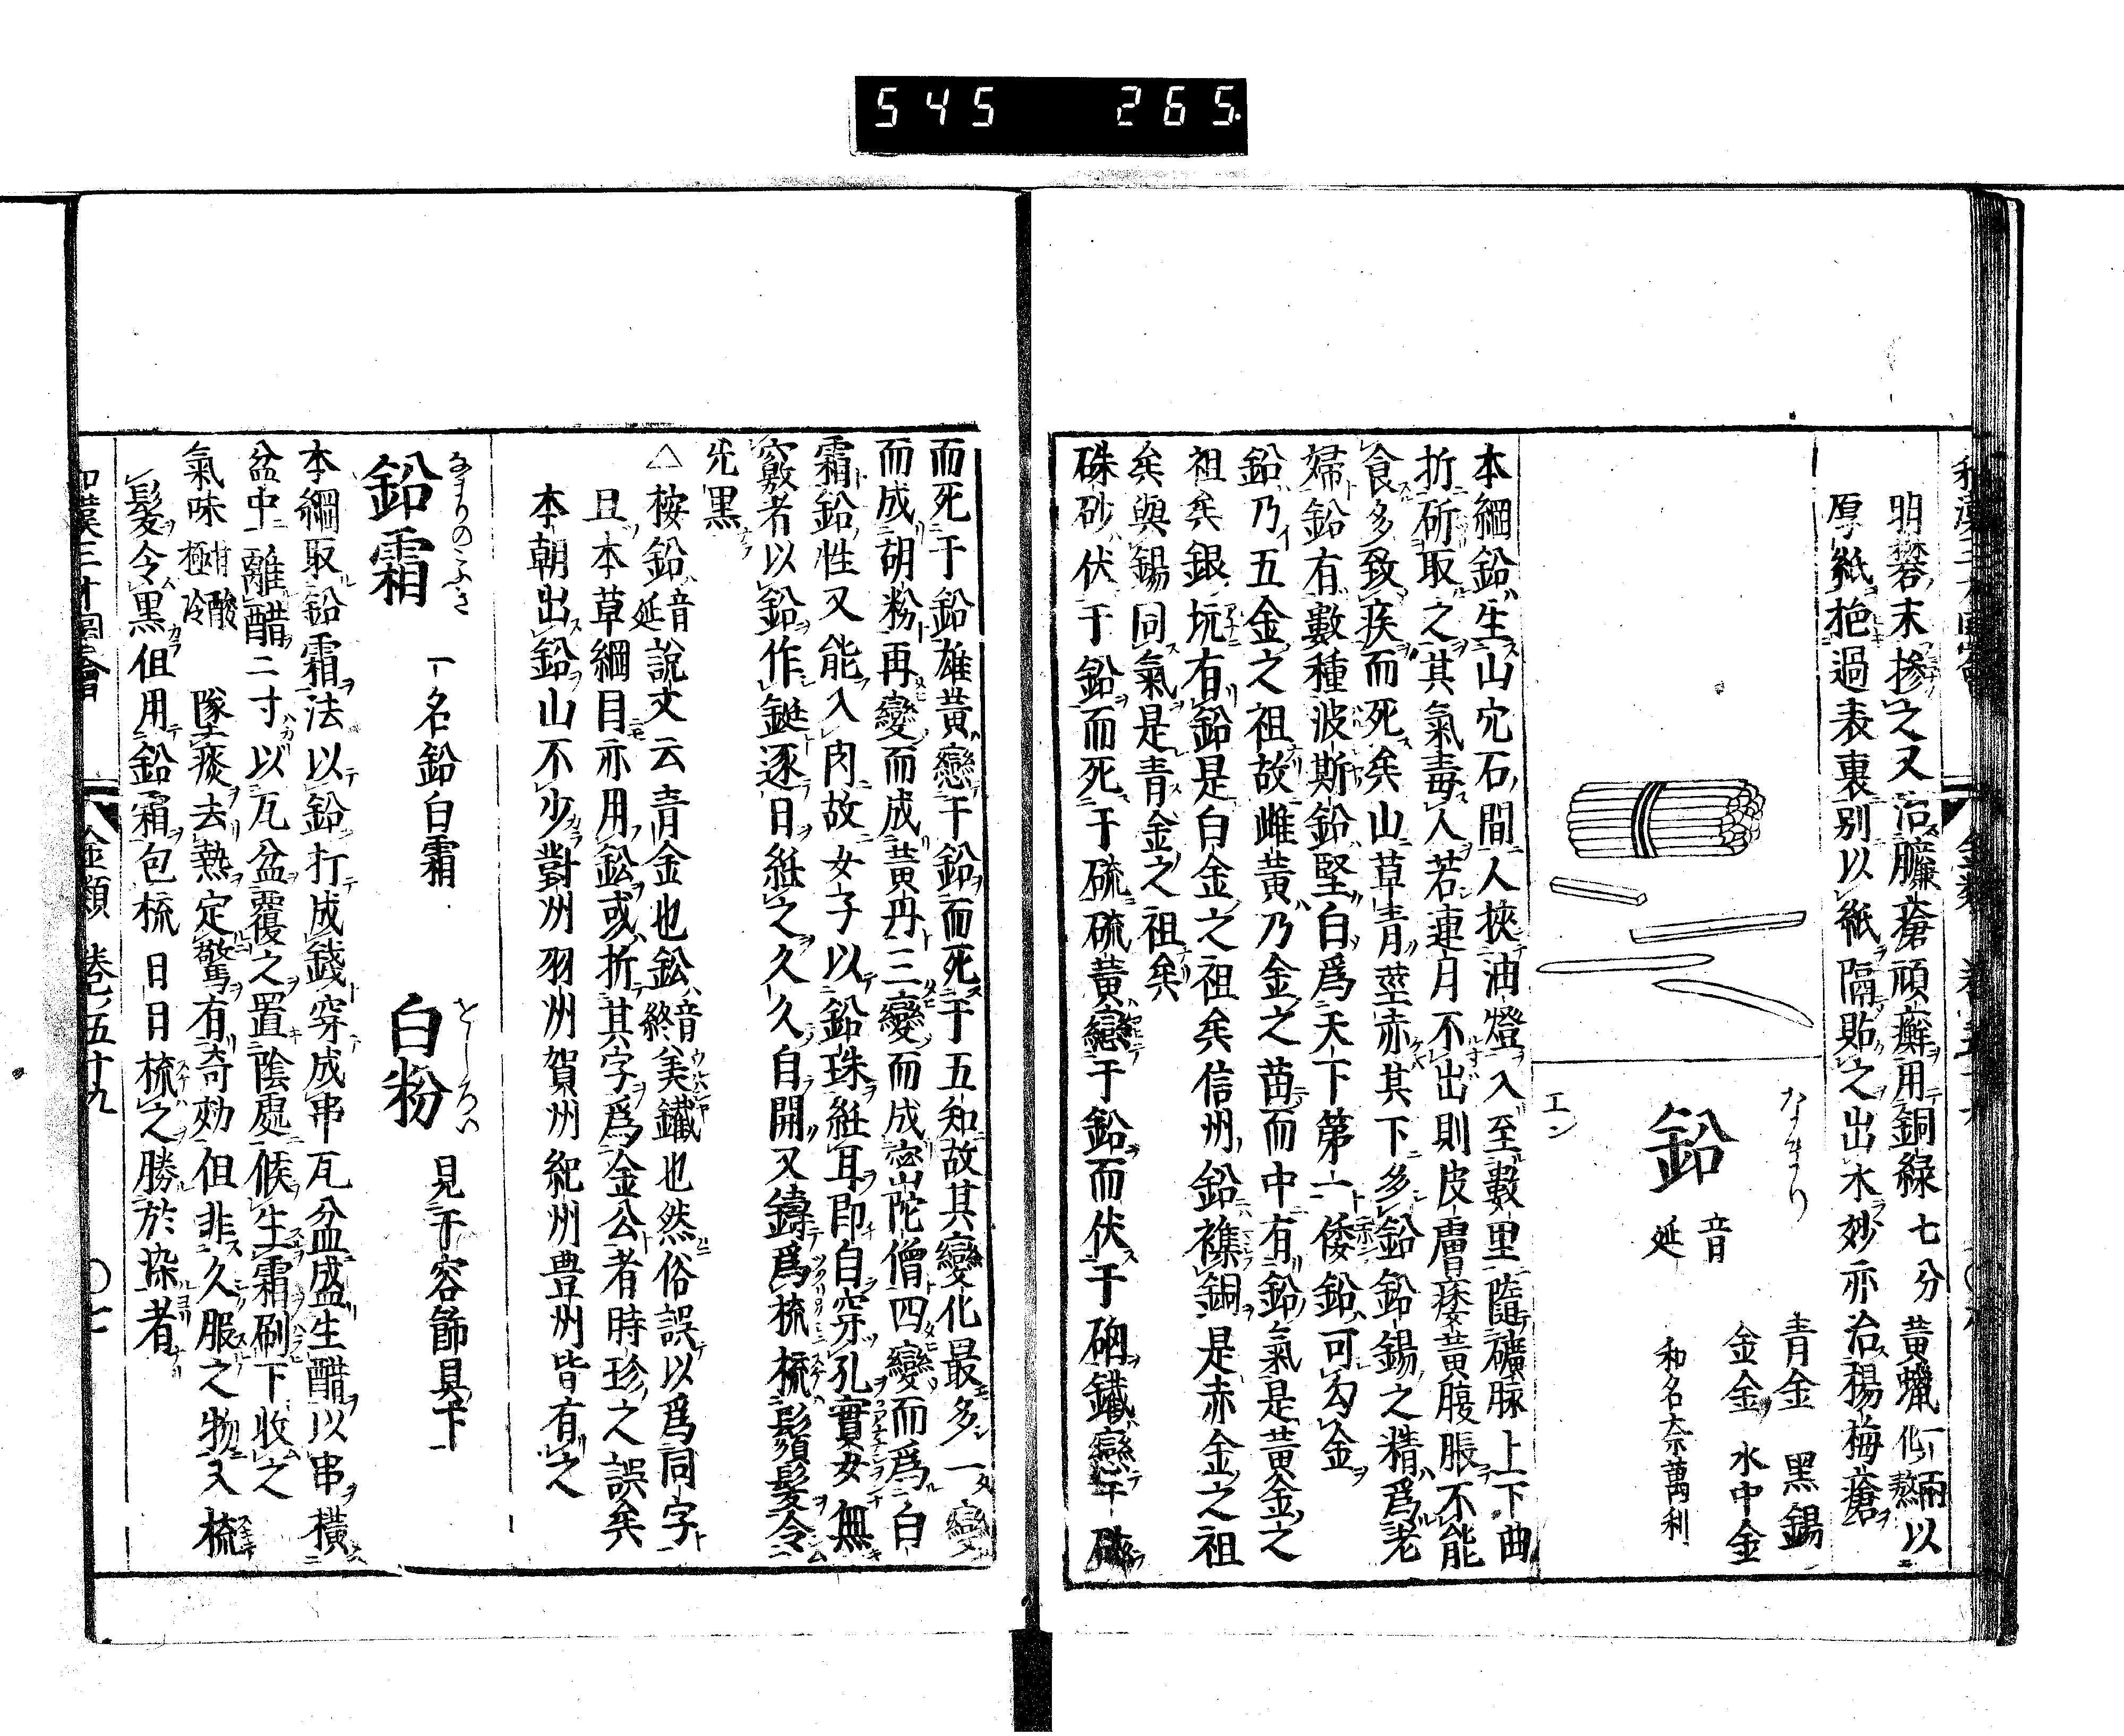 545 265.
明礬末摻之又治臁瘡頑癬用銅綠七分黃蠟一兩化熬以
厚紙拖過表裏別以紙隔貼之出水妙亦治楊梅瘡
なまり
鉛
音延
エン
青金 黑錫
金金 水中金
和名奈萬利
本綱鉛生山穴石間人挾油燈入至數里隨礦脉上下曲
折斫取之其氣毒人若連月不出則皮膚痿黃腹脹不能
食多致疾而死矣山草青莖赤其下多鉛鉛錫之精爲老
婦鉛有數種波斯鉛堅白爲天下第一倭鉛可勾金
鉛乃五金之祖故雌黃乃金之苗而中有鉛氣是黃金之
祖矣銀坑有鉛是白金之祖矣信州鉛襍銅是赤金之祖
矣與錫同氣是青金之祖矣
硃砂伏于鉛而死于硫硫黃戀于鉛而伏于硇鐵戀于磁
而死于鉛雄黃戀于鉛而死于五加故其變化最多一變
而成胡粉再變而成黃丹三變而成密陀僧四變而爲白
霜鉛性又能入肉故女子以鉛珠絍耳即自穿孔實女無
竅者以鉛作鋌逐日絍之久久自開又鑄爲梳梳鬚髮令
光黑
△按鉛音延說文云青金也鈆音終美鐵也然俗誤以爲同字
且本草綱目亦用鈆或折其字爲金公者時珍之誤矣
本朝出鉛山不少對州羽州賀州紀州豊州皆有之
なまりのふき
鉛霜 一名鉛白霜
をしろい
白粉 見于容飾具下
本綱取鉛霜法以鉛打成錢穿成串瓦盆盛生醋以串橫
盆中離醋二寸以瓦盆覆之置陰處候生霜刷下收之
氣味甘酸極冷 墜痰去熱定驚有奇効但非久服之物又梳
髮令黑但用鉛霜包梳日日梳之勝於染者
和漢三才圖會 金類 卷五十九 〇七